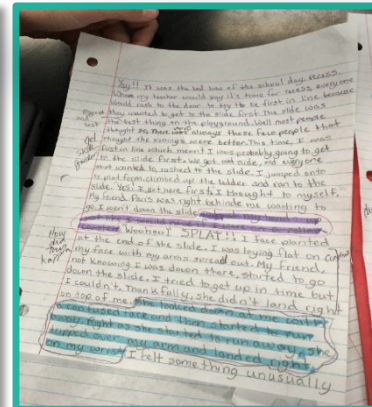 Yay!! It was the best time of the school day. Recess.
When my teacher would say it's time for recess, everyone
would rush to the door to try to be first in line because
they wanted to get to the slide first. The slide was
the best thing on the playground. Well most people
thought so, there were always those few people that
thought the swings were better. This time, I was
first in line which meant I was probably going to get
to the slide first. We got outside, and everyone
that wanted to rushed to the slide. I jumped onto
the platform, climbed up the ladder and ran to the
slide. Yes! I got here first, I thought to myself.
My friend Paris was right behinde me wanting to
go. I went down the slide
Woohoo! SPLAT!! I face planted
at the end of the slide. I was laying flat on
my face with my arms spread out. My friend,
not knowing I was down there, started to go
down the slide. I tried to get up in time but
I couldn't. Thankfully, she didn't land right
on top of me. She looked down at me with
a confused face and then started to run
away. Right as she started to run away, she
tripped over my arm and landed right
on my wrist. I felt something unusually
get
slide
How
did